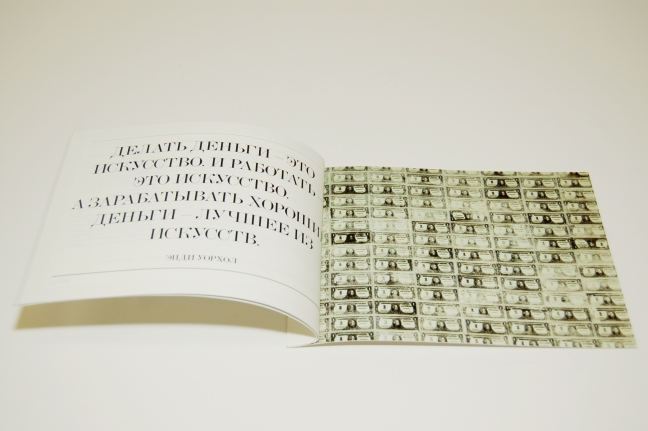 ДЕЛАТЬ ДЕНЬГИ – ЭТО
ИСКУССТВО. И РАБОТАТЬ
ЭТО ИСКУССТВО.
А ЗАРАБАТЫВАТЬ ХОРОШИ
ДЕНЬГИ – ЛУЧШЕЕ ИЗ
ИСКУССТВ.
ЭНДИ УОРХОЛ